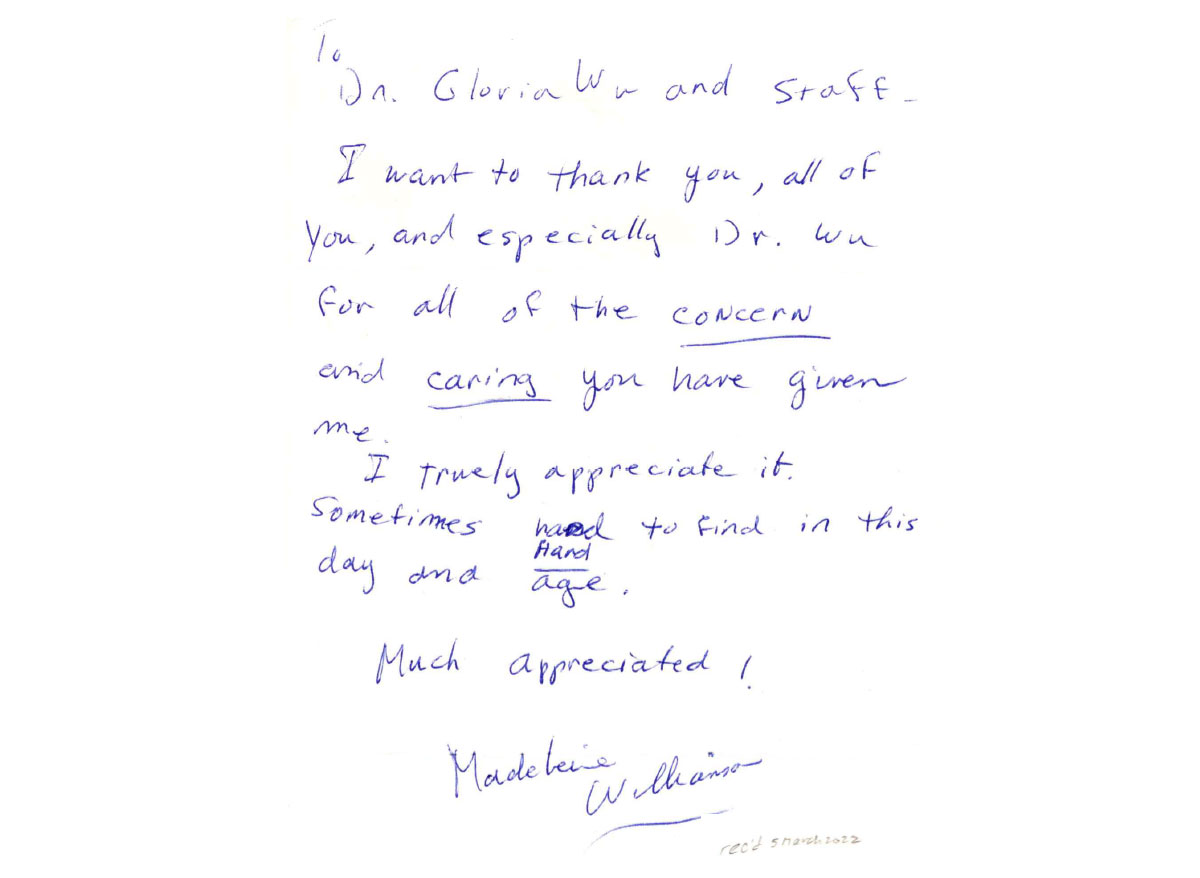 To
Dr. Gloria Wu and Staff -
I want to thank you, all of
you, and especially Dr. Wu
for all of the concern
and caring you have given
me.
I truely appreciate it.
Sometimes hard to find in this
Hard
day and age.
Much appreciated!
Madeleine
Williamson
rec'd 5 march 2022